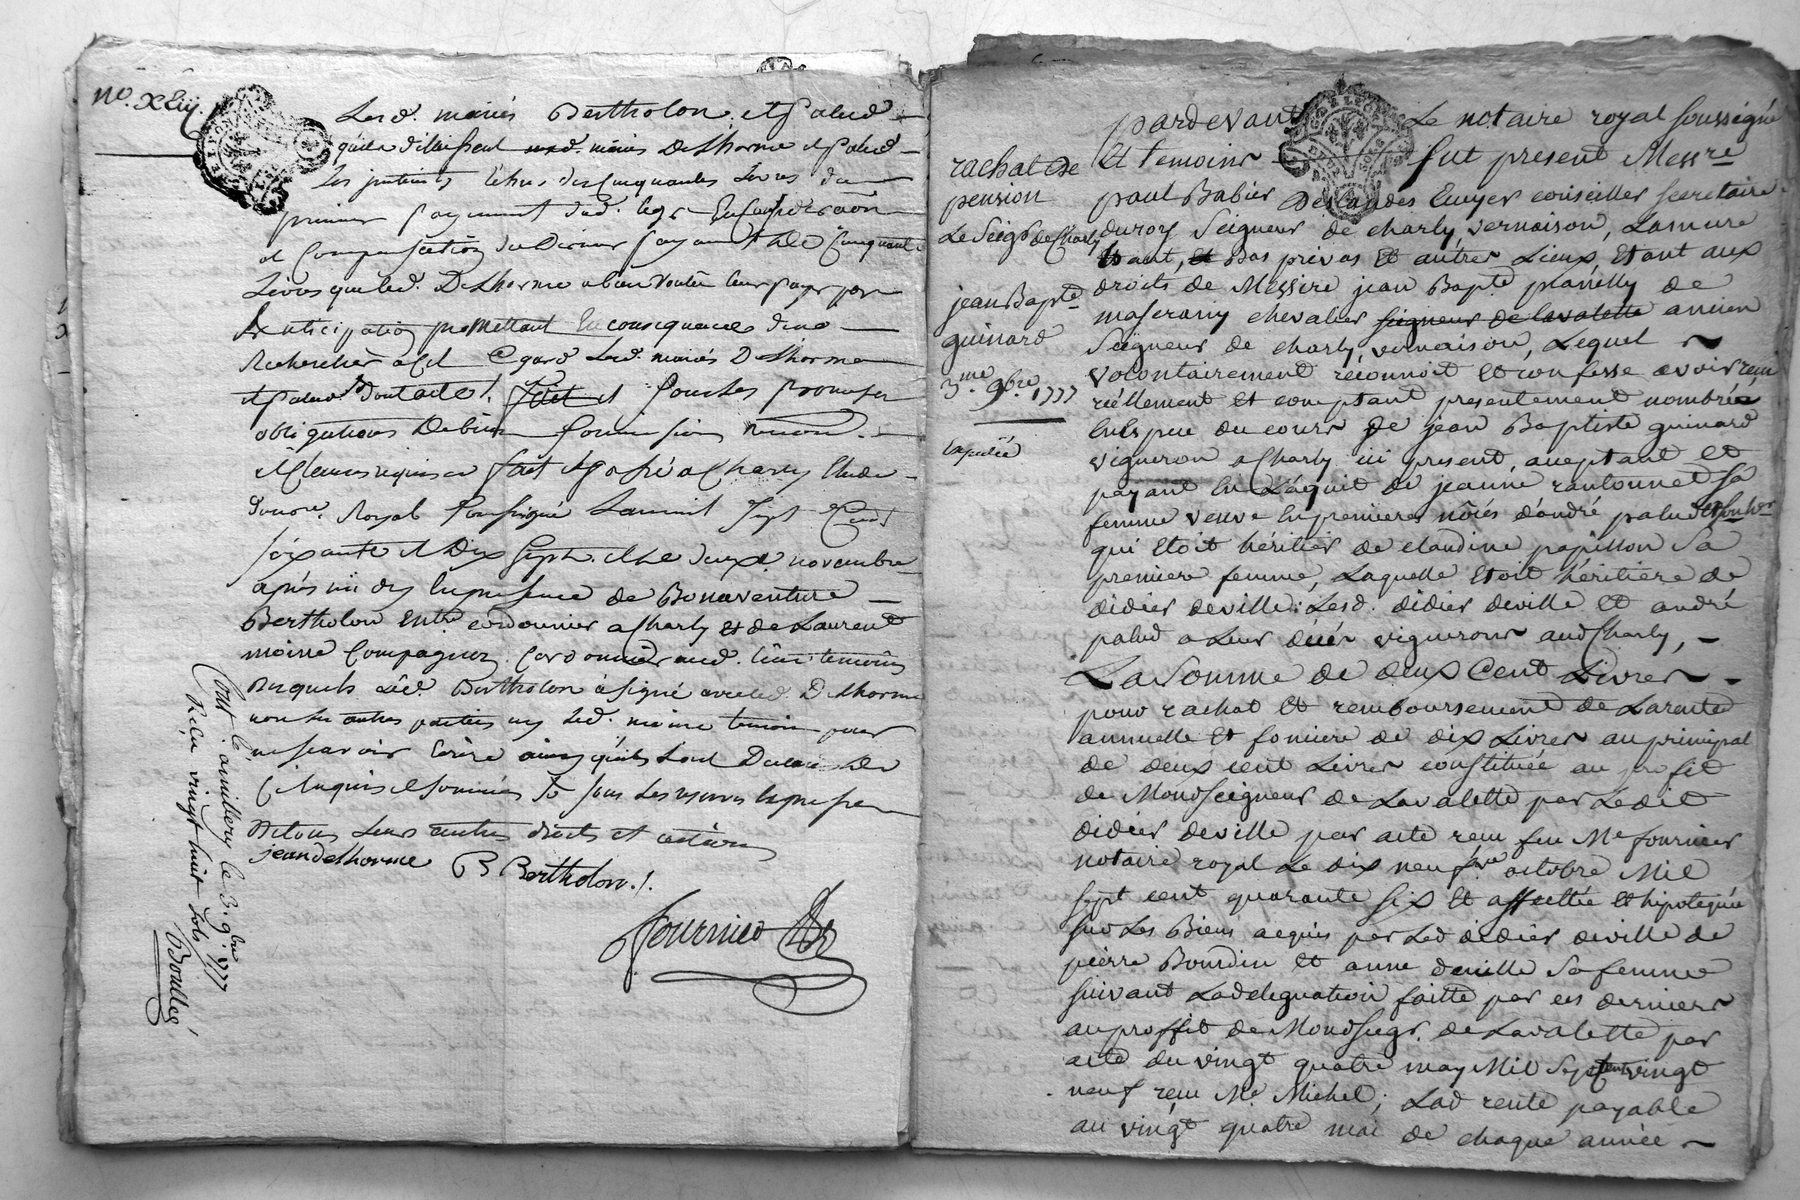 no. XLiij.
Lesd. mariés Bertholon et Palud
Les cinquante Livres du
premier payement dud. legs En Considération
et Compensation du Dernier payement de Cinquante
Livres que led. Delhorme a bien voulu leur payer par
Anticipation promettant En consequence de ne
Rechercher a cet Egard Lesd. mariés Delhorme
et Palud Dont acte. Fait et
obligations
et Clauses requises fait et passé a Charly Etude
Royal soussigné L'an mil sept Cent
soixante et Dix sept. et Le deux. novembre
après midy En presence de Bonaventure
Bertholon cordonnier a Charly et de Laurent
moine Compagnon Cordonnier aud. lieu temoins
Desquels Led. Bertholon à signé avec led. Delhorme
non les autres parties ny Led. moine temoin pour
ne scavoir Ecrire ainsy qu'ils L'ont Declaré De
Ce Enquis et sommés
De tous Leurs autres droits et actions
jean delhorme B Bertholon.
fournier
Cont. le 3. 9bre 1777
Reçu vingt huit sols
rachat de
pension
Le Seigr de Charly
jean Bapte
guinard
3me. 9bre. 1777
Expediée
pardevant Le notaire royal soussigné
Et temoins fut present Messre
paul Babier Deslandes Ecuyer conseiller secretaire
du roy Seigneur de charly vernaison, Lamure
haut, et Bas privas Et autres Lieux Etant aux
droits de Messire jean Bapte planelly de
maserany chevalier seigneur de lavalette ancien
Seigneur de charly, vernaison, Lequel
volontairement reconnoit Et confesse avoir reçu
réellement Et comptant presentement nombrée
En Espece du cours de jean Baptiste guinard
vigneron a Charly ici present, acceptant Et
payant En L'aquit de jeanne ranlonnet Sa
femme veuve En premieres nôces d'andré palud
qui Etoit héritier de claudine papillon Sa
premiere femme, Laquelle Etoit héritiere de
didier deville: Lesd. didier deville Et andré
palud a Leur décés vignerons aud Charly,
La Somme de deux Cent Livres
pour rachat Et remboursement de La rente
annuelle Et fonciere de dix Livres au principal
de deux cent Livres constituée au profit
de Mondseigneur de Lavalette par Ledit
didier deville par acte reçu feu Me fournier
notaire royal Le dix neuf octobre Mil
sept cent quarante six Et affectée Et hipotequée
sur Les Biens acquis par Led didier deville de
pierre Bourdin Et anne deville Sa femme
suivant Lad delegation faitte par ces derniers
au proffit de Mondseigr. de Lavalette par
acte du vingt quatre may Mil Sept cent vingt
neuf reçu Me Michel; Lad rente payable
au vingt quatre mai de chaque année